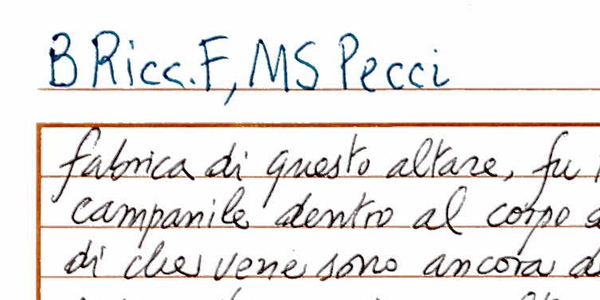 B Ricc. F, MS Pecci
fabrica di questo altare, fu
campanile dentro al corpo
di che vene sono ancora